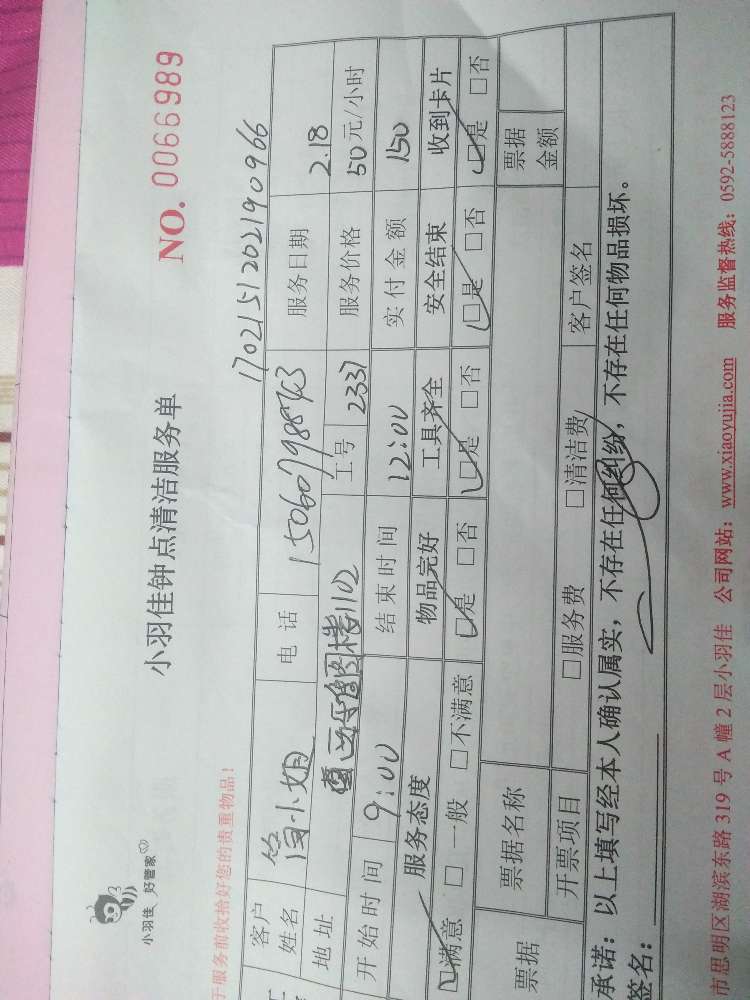 小羽佳 好管家
小羽佳钟点清洁服务单
NO. 0066989
于服务前收拾好您的贵重物品！
1702151202190966
客户姓名 小姐 电话 服务日期 2.18
地址 楼1102 工号 2337 服务价格 50元/小时
开始时间 9:00 结束时间 12:00 实付金额 150
服务态度 物品完好 工具齐全 安全结束 收到卡片
☑满意 □一般 □不满意 ☑是 □否 ☑是 □否 ☑是 □否 ☑是 □否
票据 票据名称 票据金额
开票项目 □服务费 □清洁费 客户签名
承诺：以上填写经本人确认属实，不存在任何纠纷，不存在任何物品损坏。
签名：
市思明区湖滨东路 319 号 A 幢 2 层小羽佳 公司网站：www.xiaoyujia.com 服务监督热线：0592-5888123